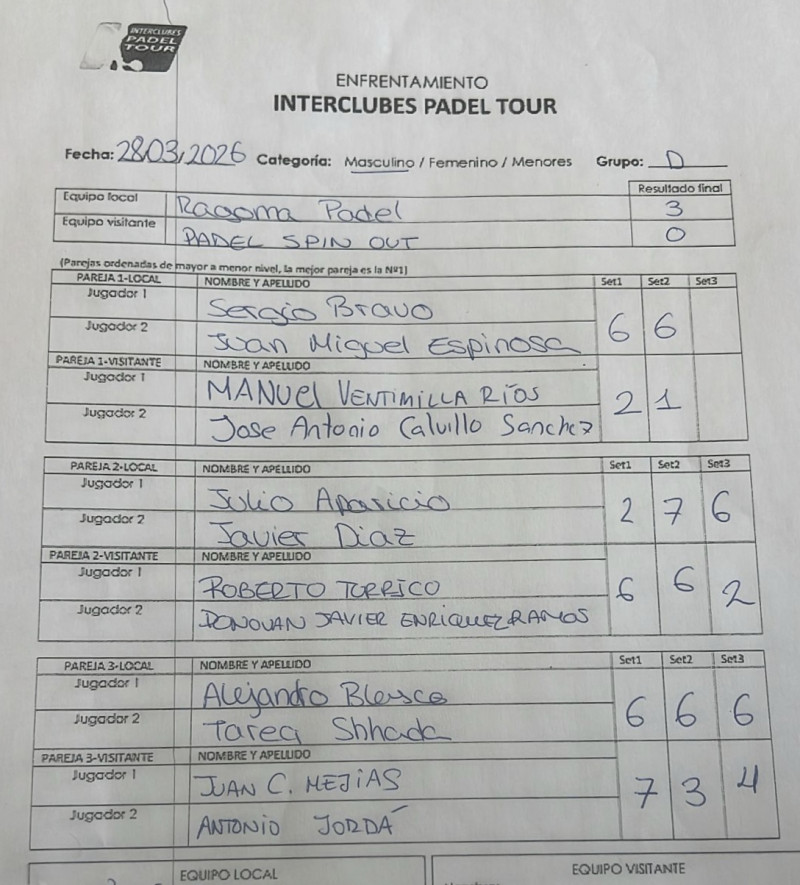 INTERCLUBES
PADEL
TOUR
ENFRENTAMIENTO
INTERCLUBES PADEL TOUR
Fecha: 28/03/2026 Categoría: Masculino / Femenino / Menores Grupo: D
Resultado final
Equipo local Racoma Padel 3
Equipo visitante PADEL SPIN OUT 0
(Parejas ordenadas de mayor a menor nivel, la mejor pareja es la Nº1)
PAREJA 1-LOCAL NOMBRE Y APELLIDO Set1 Set2 Set3
Jugador 1 Sergio Bravo
Jugador 2 Juan Miguel Espinosa 6 6
PAREJA 1-VISITANTE NOMBRE Y APELLIDO
Jugador 1 MANUEL VENTIMILLA RÍOS 2 1
Jugador 2 Jose Antonio Calvillo Sanchez
PAREJA 2-LOCAL NOMBRE Y APELLIDO Set1 Set2 Set3
Jugador 1 Julio Aparicio 2 7 6
Jugador 2 Javier Diaz
PAREJA 2-VISITANTE NOMBRE Y APELLIDO
Jugador 1 ROBERTO TORRICO 6 6 2
Jugador 2 DONOVAN JAVIER ENRIQUEZ RAMOS
PAREJA 3-LOCAL NOMBRE Y APELLIDO Set1 Set2 Set3
Jugador 1 Alejandro Blasco 6 6 6
Jugador 2 Tareq Shhada
PAREJA 3-VISITANTE NOMBRE Y APELLIDO
Jugador 1 JUAN C. MEJIAS 7 3 4
Jugador 2 ANTONIO JORDÁ
EQUIPO LOCAL EQUIPO VISITANTE